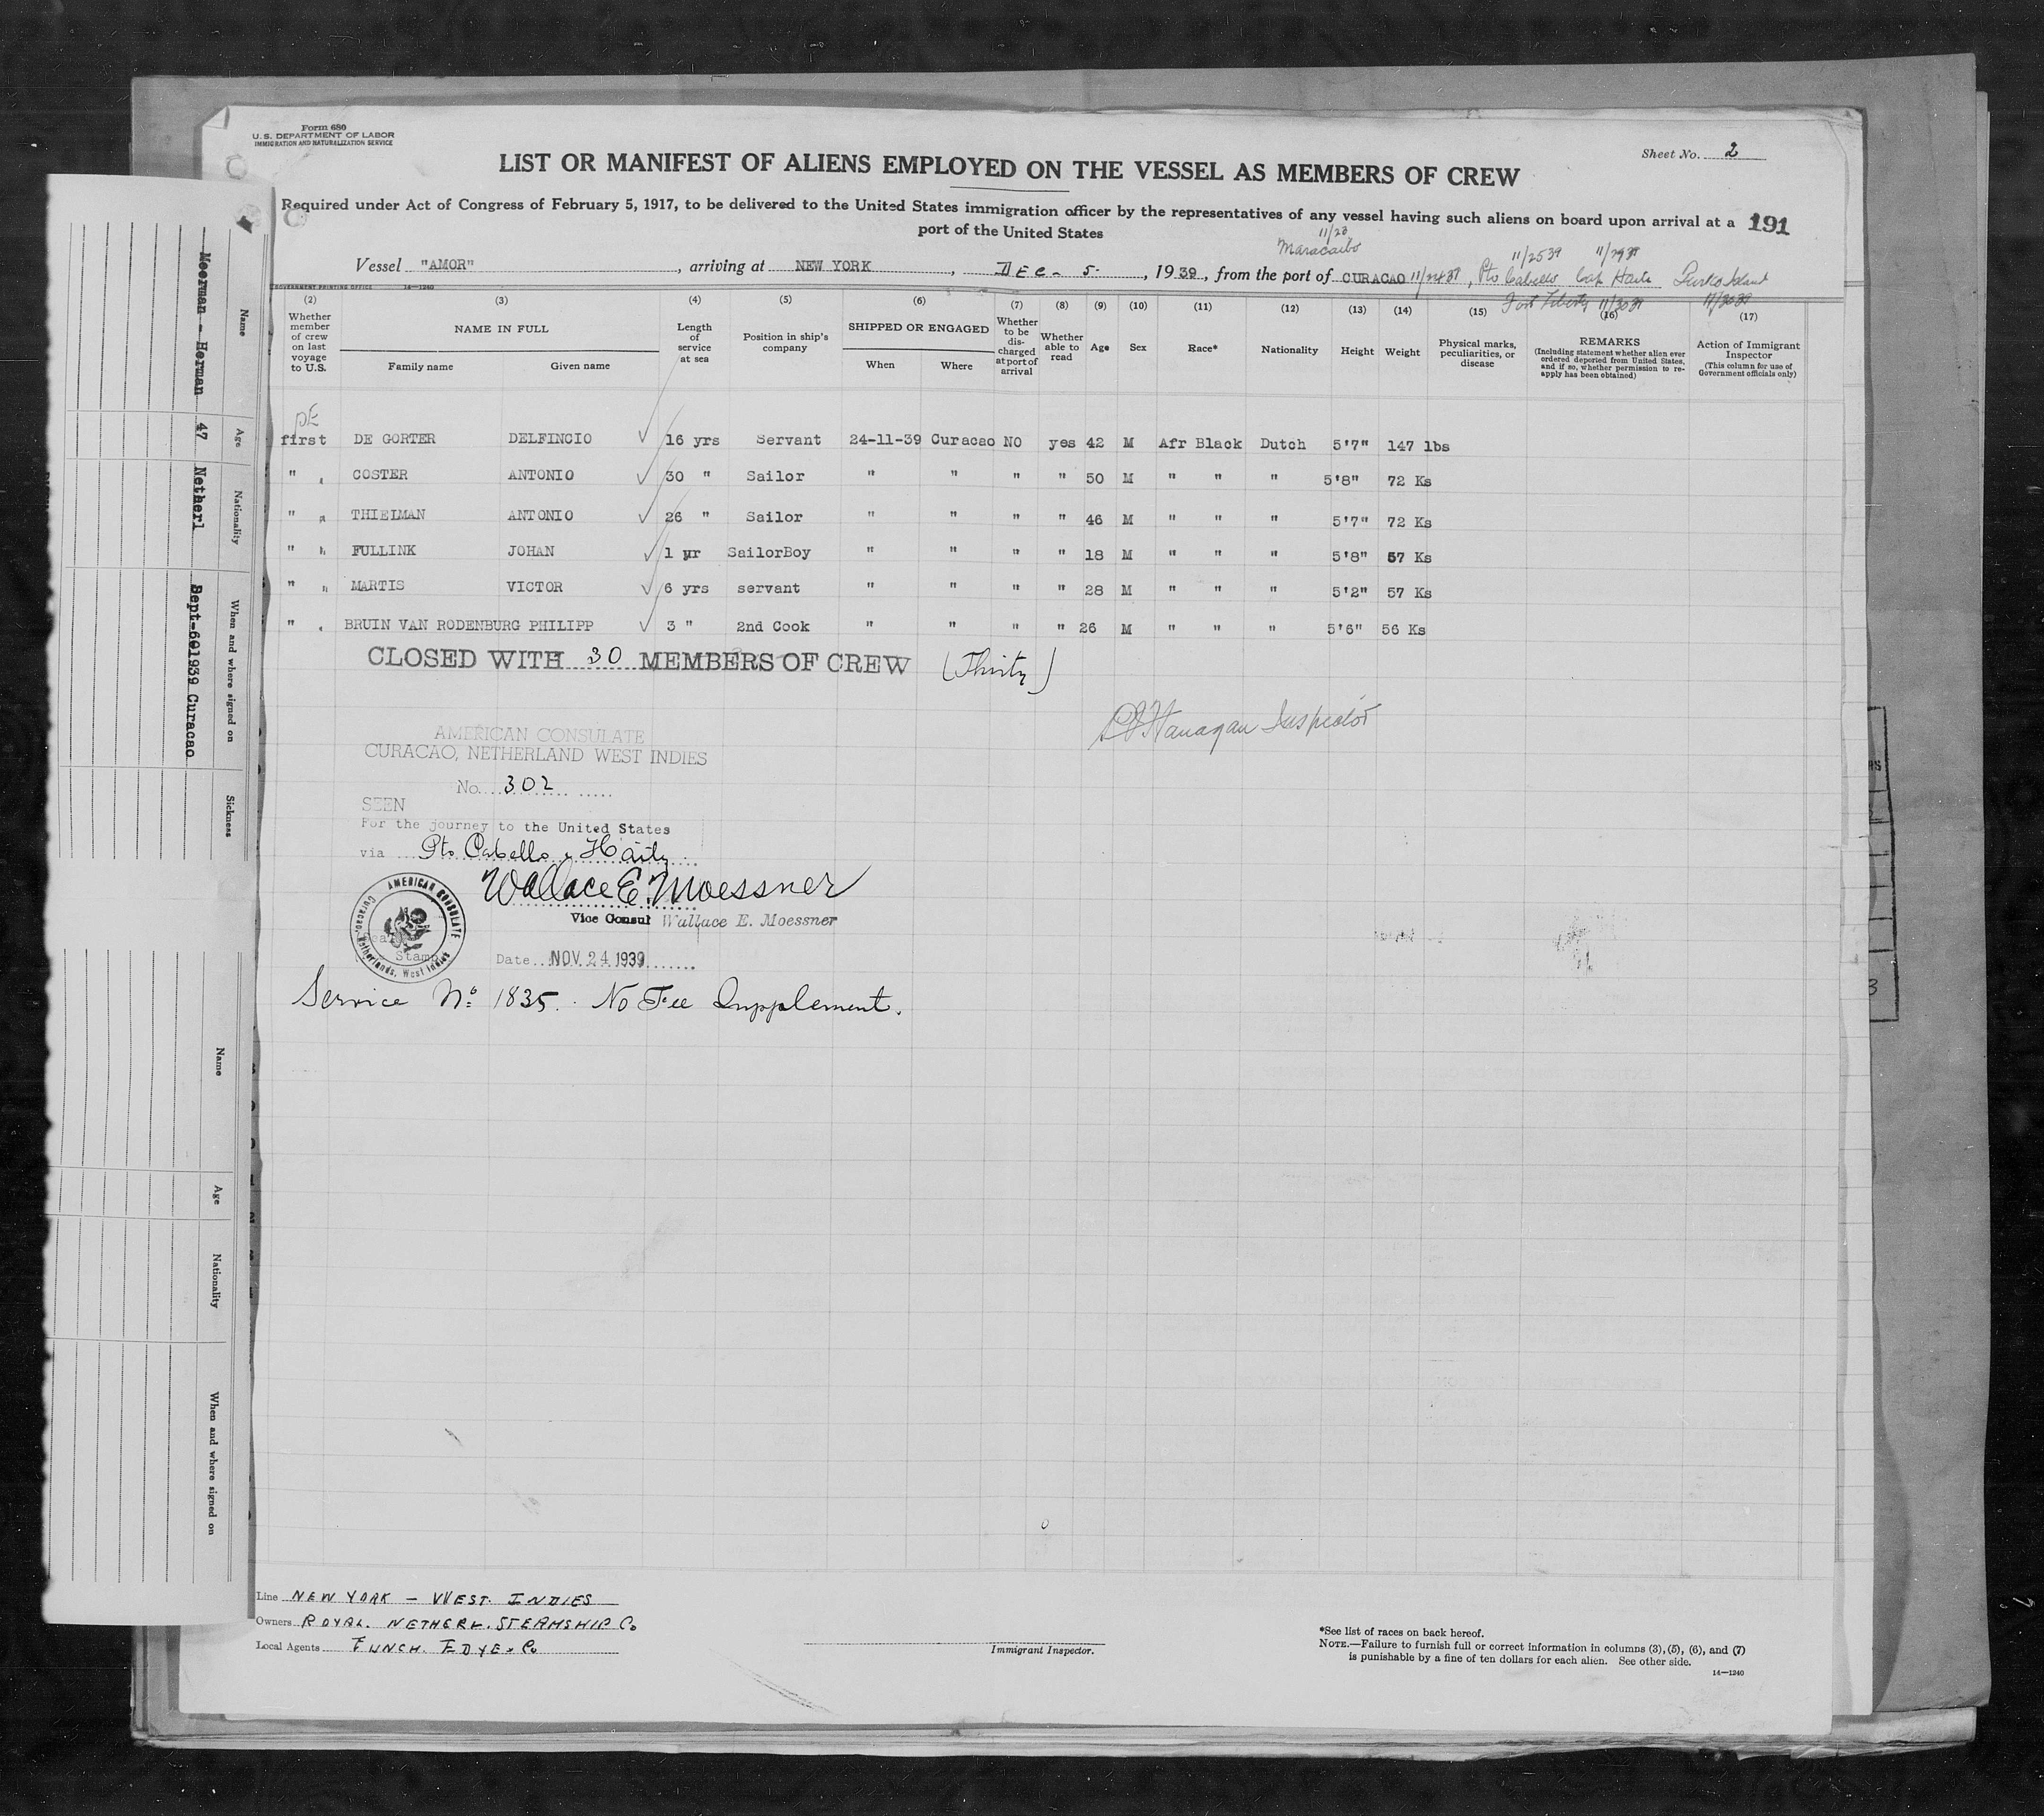 Form 680
U. S. DEPARTMENT OF LABOR
IMMIGRATION AND NATURALIZATION SERVICE
Sheet No. 2
LIST OR MANIFEST OF ALIENS EMPLOYED ON THE VESSEL AS MEMBERS OF CREW
Required under Act of Congress of February 5, 1917, to be delivered to the United States immigration officer by the representatives of any vessel having such aliens on board upon arrival at a
port of the United States
191
11/23
Maracaibo
11/25 39 11/29 39
Vessel "AMOR", arriving at NEW YORK, Dec. 5. , 1939, from the port of CURACAO 11/24 39, Pto Cabello Cap Haiti Turks Island
Fort Liberty 11/30 39 11/30 39
GOVERNMENT PRINTING OFFICE 14-1240
(2) Whether member of crew on last voyage to U.S.
(3) NAME IN FULL Family name Given name
(4) Length of service at sea
(5) Position in ship's company
(6) SHIPPED OR ENGAGED When Where
(7) Whether to be discharged at port of arrival
(8) Whether able to read
(9) Age
(10) Sex
(11) Race*
(12) Nationality
(13) Height
(14) Weight
(15) Physical marks, peculiarities, or disease
(16) REMARKS (Including statement whether alien ever ordered deported from United States, and if so, whether permission to reapply has been obtained)
(17) Action of Immigrant Inspector (This column for use of Government officials only)
DE
first DE GORTER DELFINCIO 16 yrs Servant 24-11-39 Curacao NO yes 42 M Afr Black Dutch 5'7" 147 lbs
" COSTER ANTONIO 30 " Sailor " " " " 50 M " " " 5'8" 72 Ks
" " THIELMAN ANTONIO 26 " Sailor " " " " 46 M " " " 5'7" 72 Ks
" " FULLINK JOHAN 1 yr SailorBoy " " " " 18 M " " " 5'8" 57 Ks
" " MARTIS VICTOR 6 yrs servant " " " " 28 M " " " 5'2" 57 Ks
" BRUIN VAN RODENBURG PHILIPP 3 " 2nd Cook " " " " 26 M " " " 5'6" 56 Ks
CLOSED WITH 30 MEMBERS OF CREW (Thirty)
Inspector
AMERICAN CONSULATE
CURACAO, NETHERLAND WEST INDIES
No. 302
SEEN
For the journey to the United States
via Pto Cabello & Haity
Wallace E. Moessner
Vice Consul Wallace E. Moessner
AMERICAN CONSULATE
Curacao, Netherlands, West Indies
Stamp
Date NOV 24 1939
Service No: 1835. No Fee Supplement.
Line NEW YORK — WEST. INDIES
Owners ROYAL. NETHERL. STEAMSHIP Co
Local Agents FUNCH. EDYE & Co
Immigrant Inspector.
*See list of races on back hereof.
NOTE.—Failure to furnish full or correct information in columns (3), (5), (6), and (7)
is punishable by a fine of ten dollars for each alien. See other side.
14—1240
Name Age Nationality When and where signed on Sickness
Moerman - Herman 47 Netherl Sept-601939 Curacao
Name Age Nationality When and where signed on